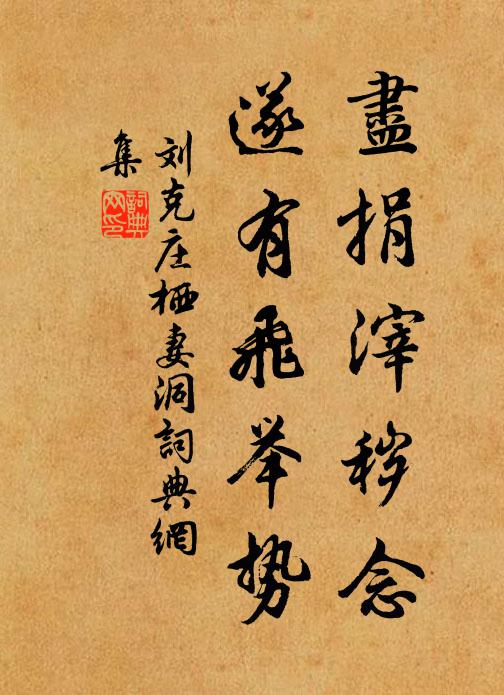 盡捐滓穢念
遂有飛举勢
刘克庄栖妻洞詞典網
集
詞典网印